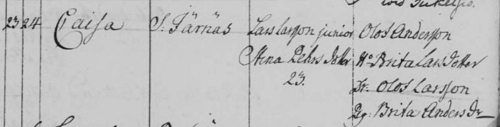 23 24 Caisa S. Tärnås Lars Larsson junior Olof Andersson
Stina Pehrs Dotter H. Brita Lars Dotter
23. Dr. Olof Larsson
Pg. Brita Anders Dr